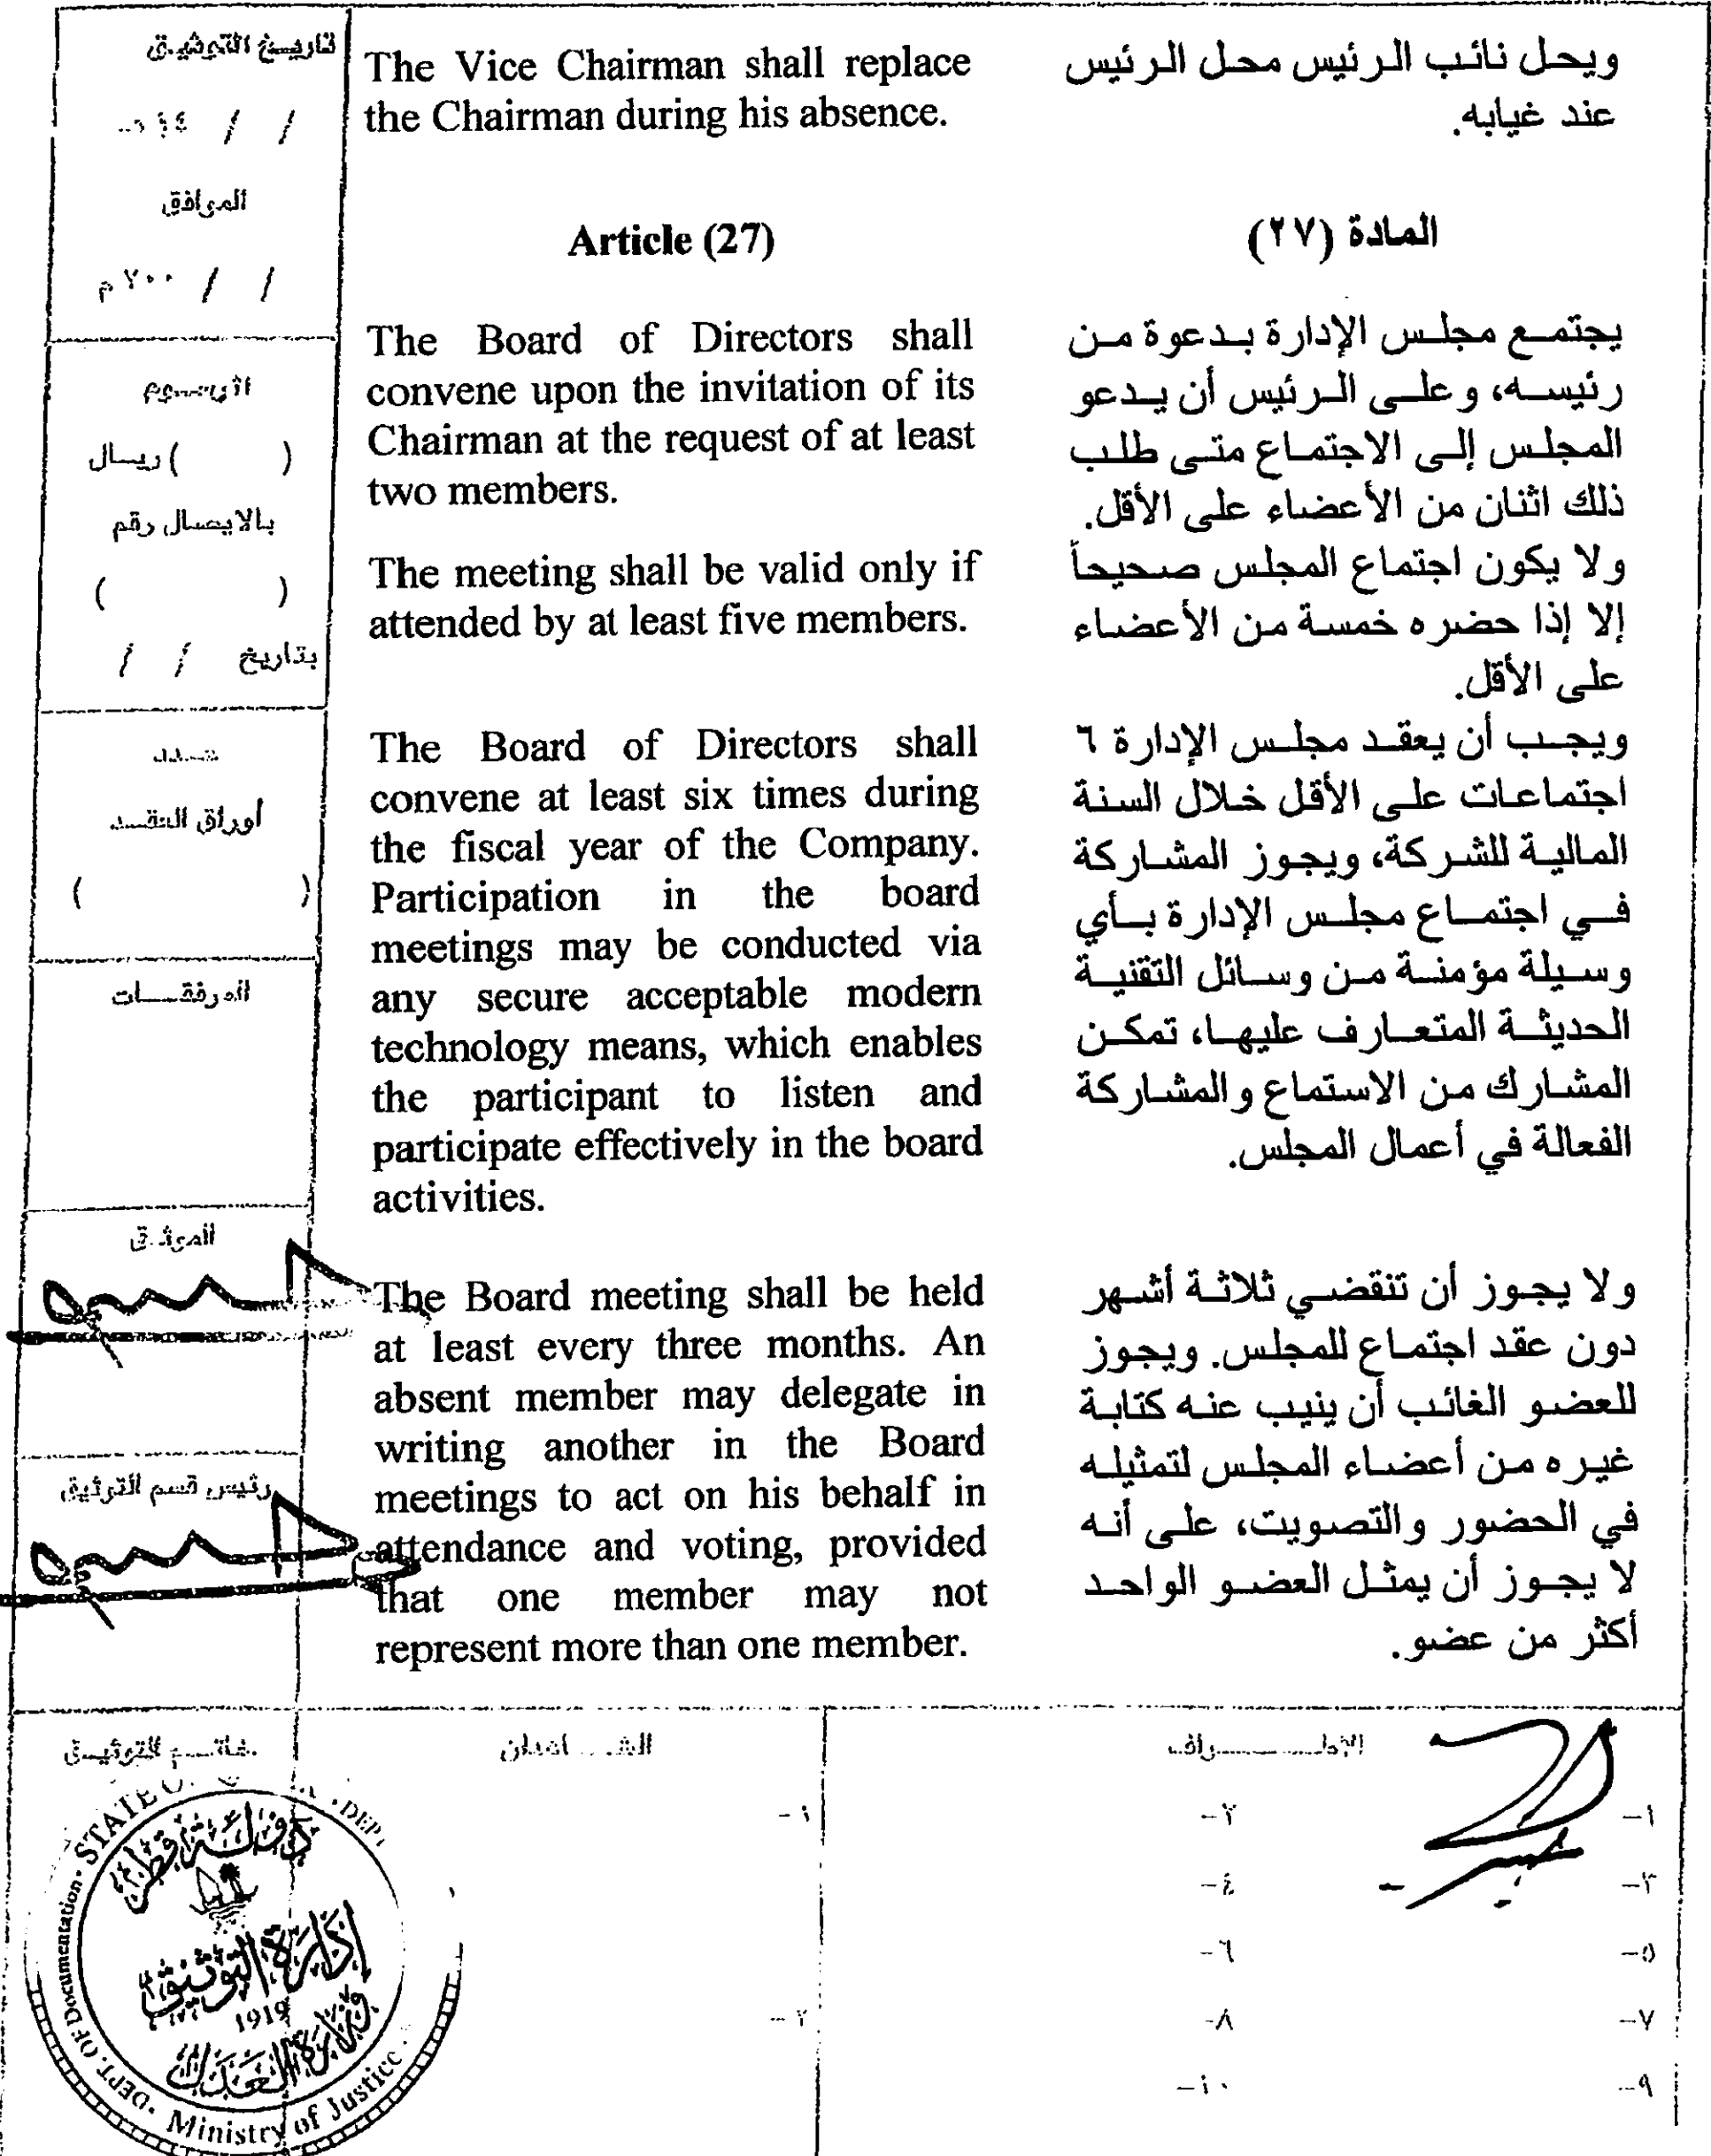 تاريخ التوثيق
/ / ١٤هـ
الموافق
/ / ٢٠٠م
الرسوم
( ) ريال
بالايصال رقم
( )
بتاريخ / /
عدد
أوراق العقد
( )
المرفقات
الموثق
رئيس قسم التوثيق
The Vice Chairman shall replace
the Chairman during his absence.
Article (27)
The Board of Directors shall
convene upon the invitation of its
Chairman at the request of at least
two members.
The meeting shall be valid only if
attended by at least five members.
The Board of Directors shall
convene at least six times during
the fiscal year of the Company.
Participation in the board
meetings may be conducted via
any secure acceptable modern
technology means, which enables
the participant to listen and
participate effectively in the board
activities.
The Board meeting shall be held
at least every three months. An
absent member may delegate in
writing another in the Board
meetings to act on his behalf in
attendance and voting, provided
that one member may not
represent more than one member.
ويحل نائب الرئيس محل الرئيس
عند غيابه.
المادة (٢٧)
يجتمع مجلس الإدارة بدعوة من
رئيسه، وعلى الرئيس أن يدعو
المجلس إلى الاجتماع متى طلب
ذلك اثنان من الأعضاء على الأقل.
ولا يكون اجتماع المجلس صحيحاً
إلا إذا حضره خمسة من الأعضاء
على الأقل.
ويجب أن يعقد مجلس الإدارة ٦
اجتماعات على الأقل خلال السنة
المالية للشركة، ويجوز المشاركة
في اجتماع مجلس الإدارة بأي
وسيلة مؤمنة من وسائل التقنية
الحديثة المتعارف عليها، تمكن
المشارك من الاستماع والمشاركة
الفعالة في أعمال المجلس.
ولا يجوز أن تنقضي ثلاثة أشهر
دون عقد اجتماع للمجلس. ويجوز
للعضو الغائب أن ينيب عنه كتابة
غيره من أعضاء المجلس لتمثيله
في الحضور والتصويت، على أنه
لا يجوز أن يمثل العضو الواحد
أكثر من عضو.
الأطراف
١-
٢-
٣-
٤-
٥-
٦-
٧-
٨-
٩-
١٠-
الشاهدان
١-
٢-
خاتم التوثيق
STATE OF
دولة قطر
إدارة التوثيق
1919
وزارة العدل
DEPT. OF Documentation
Ministry of Justice